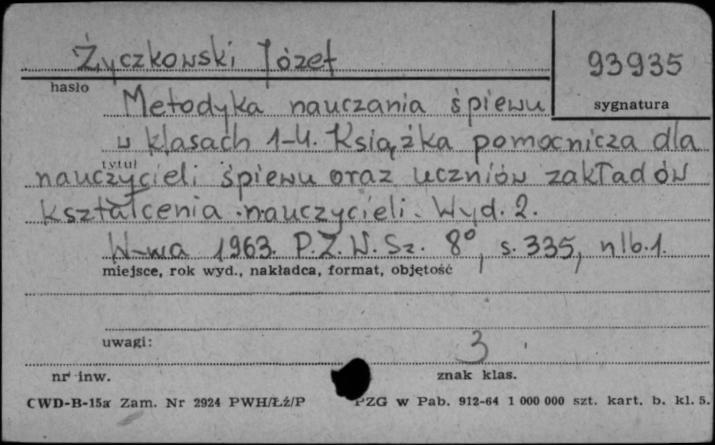 Życzkowski Józef
93935
hasło
sygnatura
Metodyka nauczania śpiewu
w klasach 1-4. Książka pomocnicza dla
tytuł
nauczycieli śpiewu oraz uczniów zakładów
kształcenia nauczycieli. Wyd. 2.
W-wa 1963. P.Z.W.Sz. 8°, s. 335, nlb. 1.
miejsce, rok wyd., nakładca, format, objętość
uwagi:
3
nr inw.
znak klas.
CWD-B-15a Zam. Nr 2924 PWH/Łż/P
PZG w Pab. 912-64 1 000 000 szt. kart. b. kl. 5.